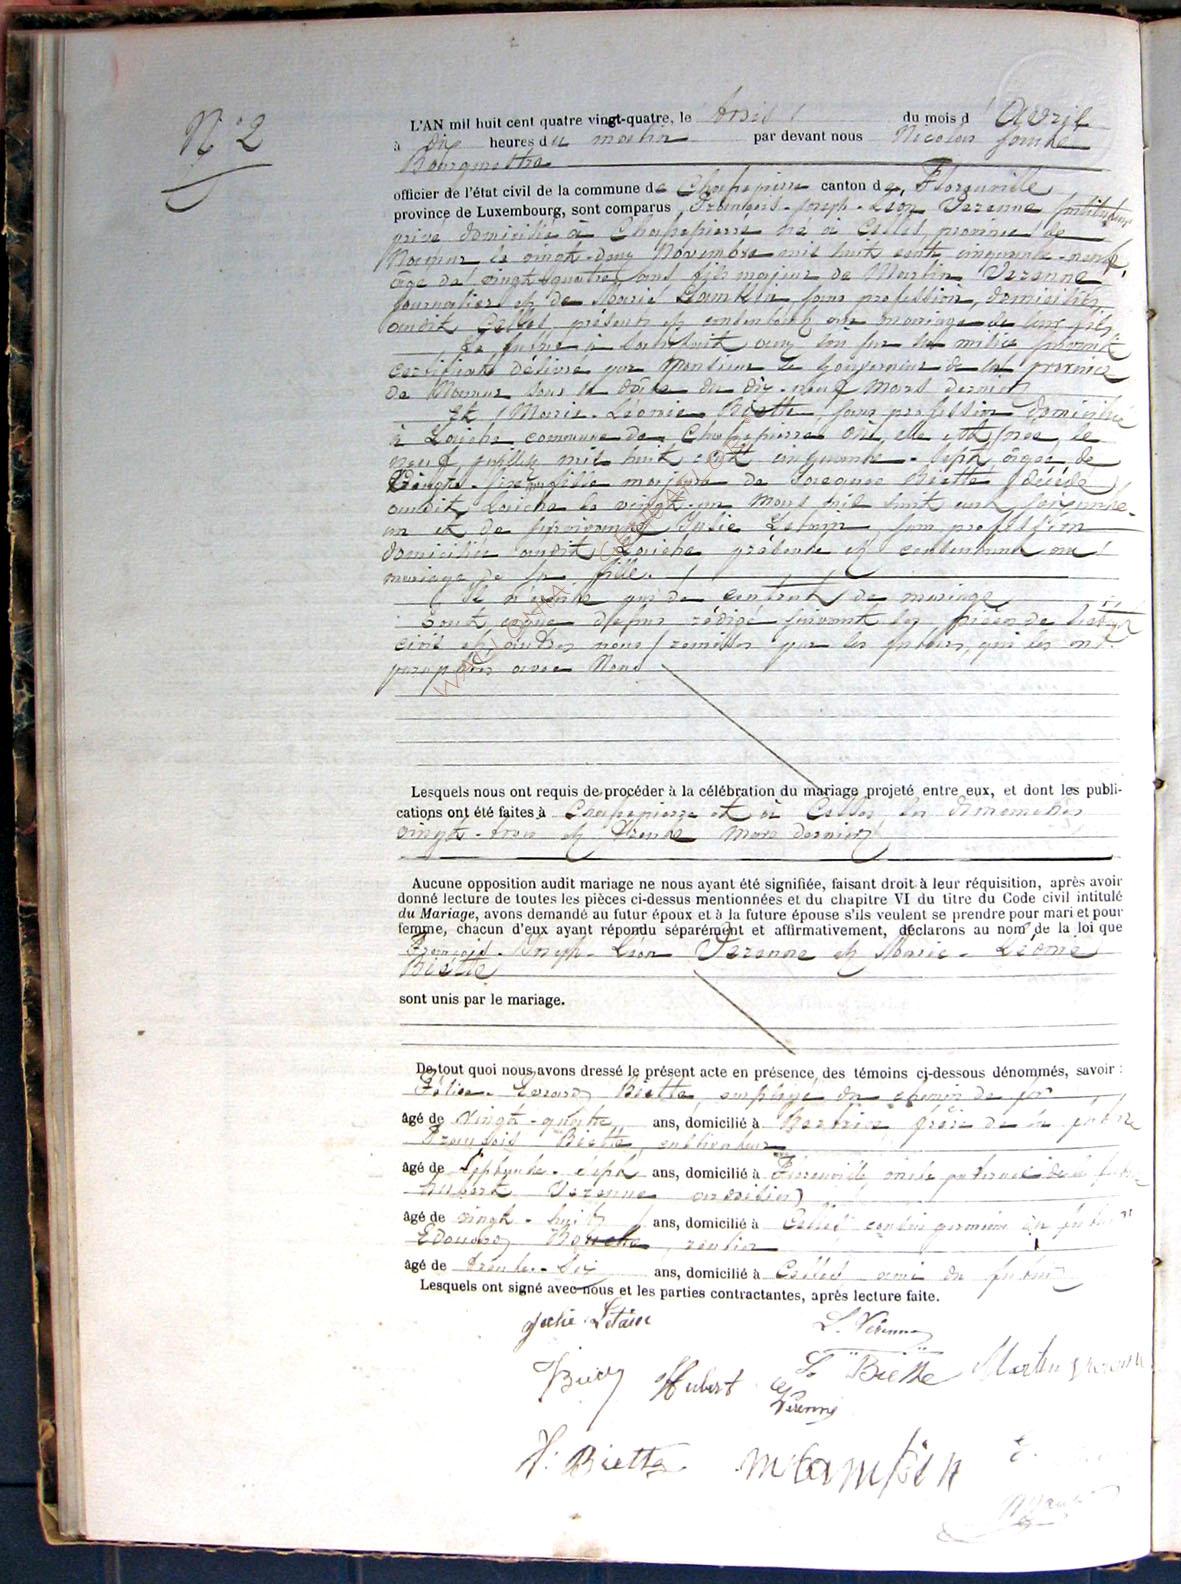 N° 2
L'AN mil huit cent quatre vingt-quatre, le trois du mois d'Avril
à dix heures du matin par devant nous Nicolas
Bourgmestre
officier de l'état civil de la commune de Chassepierre canton de Florenville
province de Luxembourg, sont comparus François-Joseph-Léon Verenne
privé domicilié à Chassepierre né à Celles, province de
Namur le vingt-deux Novembre mil huit cent cinquante-neuf,
âgé de vingt-quatre ans fils majeur de Martin Verenne
journalier et de Marie Lambkin sans profession, domiciliés
audit Celles, présents et consentant au mariage de leur fils
Le futur a satisfait aux lois sur la milice suivant
certificat délivré par Monsieur le Gouverneur de la province
de Namur sous la date du dix-neuf Mars dernier
Et Marie-Léonie Biette, sans profession domiciliée
à Laiche commune de Chassepierre où elle est née le
neuf juillet mil huit cent cinquante-sept âgée de
vingt-six ans fille majeure de Biette décédé
audit Laiche le vingt-un Mars mil huit cent soixante-
un et de Julie Letain sans profession
domiciliée audit Laiche présente et consentant au
mariage de sa fille.
Il n'existe pas de contrat de mariage
Tout ce que dessus rédigé suivant les pièces de l'état
civil et autres nous remises par les futurs, qui les ont
paraphées avec Nous
Lesquels nous ont requis de procéder à la célébration du mariage projeté entre eux, et dont les publi-
cations ont été faites à Chassepierre et à Celles les dimanches
vingt-trois et trente Mars dernier
Aucune opposition audit mariage ne nous ayant été signifiée, faisant droit à leur réquisition, après avoir
donné lecture de toutes les pièces ci-dessus mentionnées et du chapitre VI du titre du Code civil intitulé
du Mariage, avons demandé au futur époux et à la future épouse s'ils veulent se prendre pour mari et pour
femme, chacun d'eux ayant répondu séparément et affirmativement, déclarons au nom de la loi que
François-Joseph-Léon Verenne et Marie-Léonie
Biette
sont unis par le mariage.
De tout quoi nous avons dressé le présent acte en présence des témoins ci-dessous dénommés, savoir :
Biette, employé du chemin de fer
âgé de vingt-quatre ans, domicilié à frère de la future
François Biette, cultivateur
âgé de septante-sept ans, domicilié à oncle paternel de la future
Hubert Verenne
âgé de vingt-huit ans, domicilié à Celles cousin germain du futur
Edouard rentier
âgé de trente-six ans, domicilié à Celles ami du futur
Lesquels ont signé avec nous et les parties contractantes, après lecture faite.
Julie Letain L. Verenne
Hubert Biette Martin Verenne
Verenne
Biette